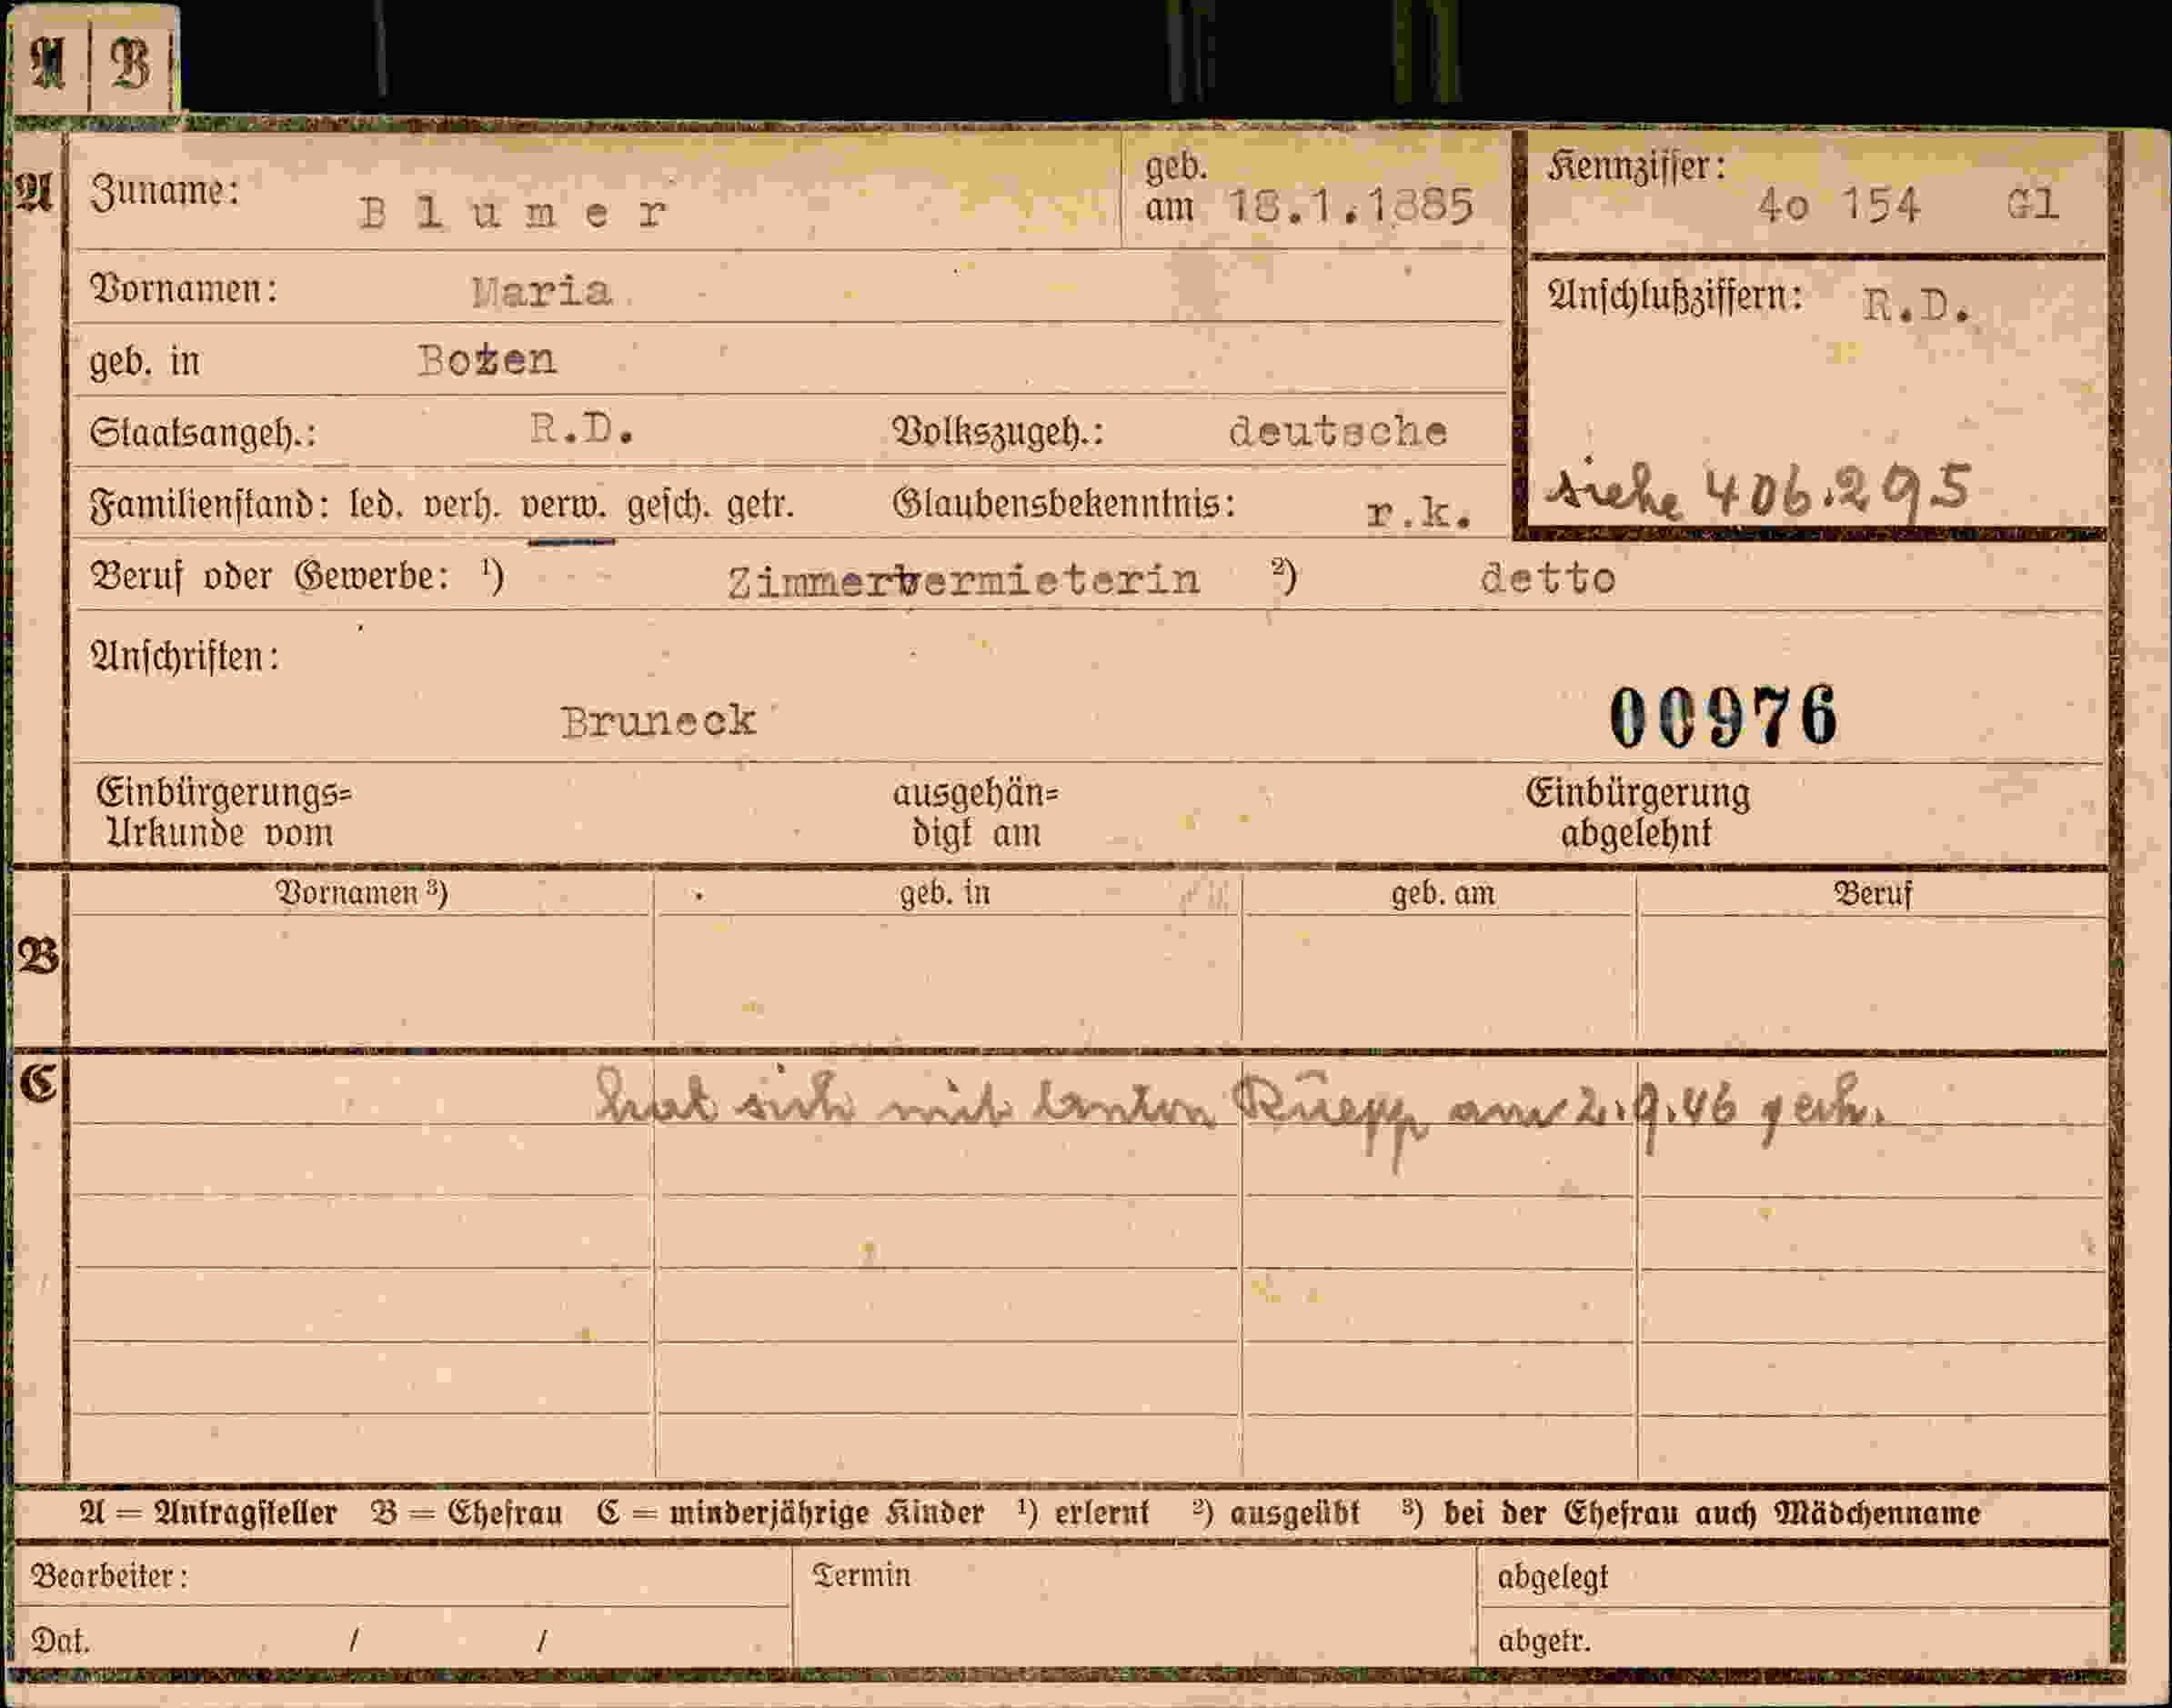 A | B
A Zuname: Blumer geb. am 18.1.1885 Kennziffer: 4o 154 Gl
Vornamen: Maria Anschlußziffern: R.D.
geb. in Bozen
Staatsangeh.: R.D. Volkszugeh.: deutsche
Familienstand: led. verh. verw. gesch. getr. Glaubensbekenntnis: r.k. siehe 406.295
Beruf oder Gewerbe: 1) Zimmervermieterin 2) detto
Anschriften:
Bruneck 00976
Einbürgerungs= ausgehän= Einbürgerung
Urkunde vom digt am abgelehnt
Vornamen 3) geb. in geb. am Beruf
B
C hat sich mit Anton am 2.9.46
A = Antragsteller B = Ehefrau C = minderjährige Kinder 1) erlernt 2) ausgeübt 3) bei der Ehefrau auch Mädchenname
Bearbeiter: Termin abgelegt
Dat. / / abgetr.